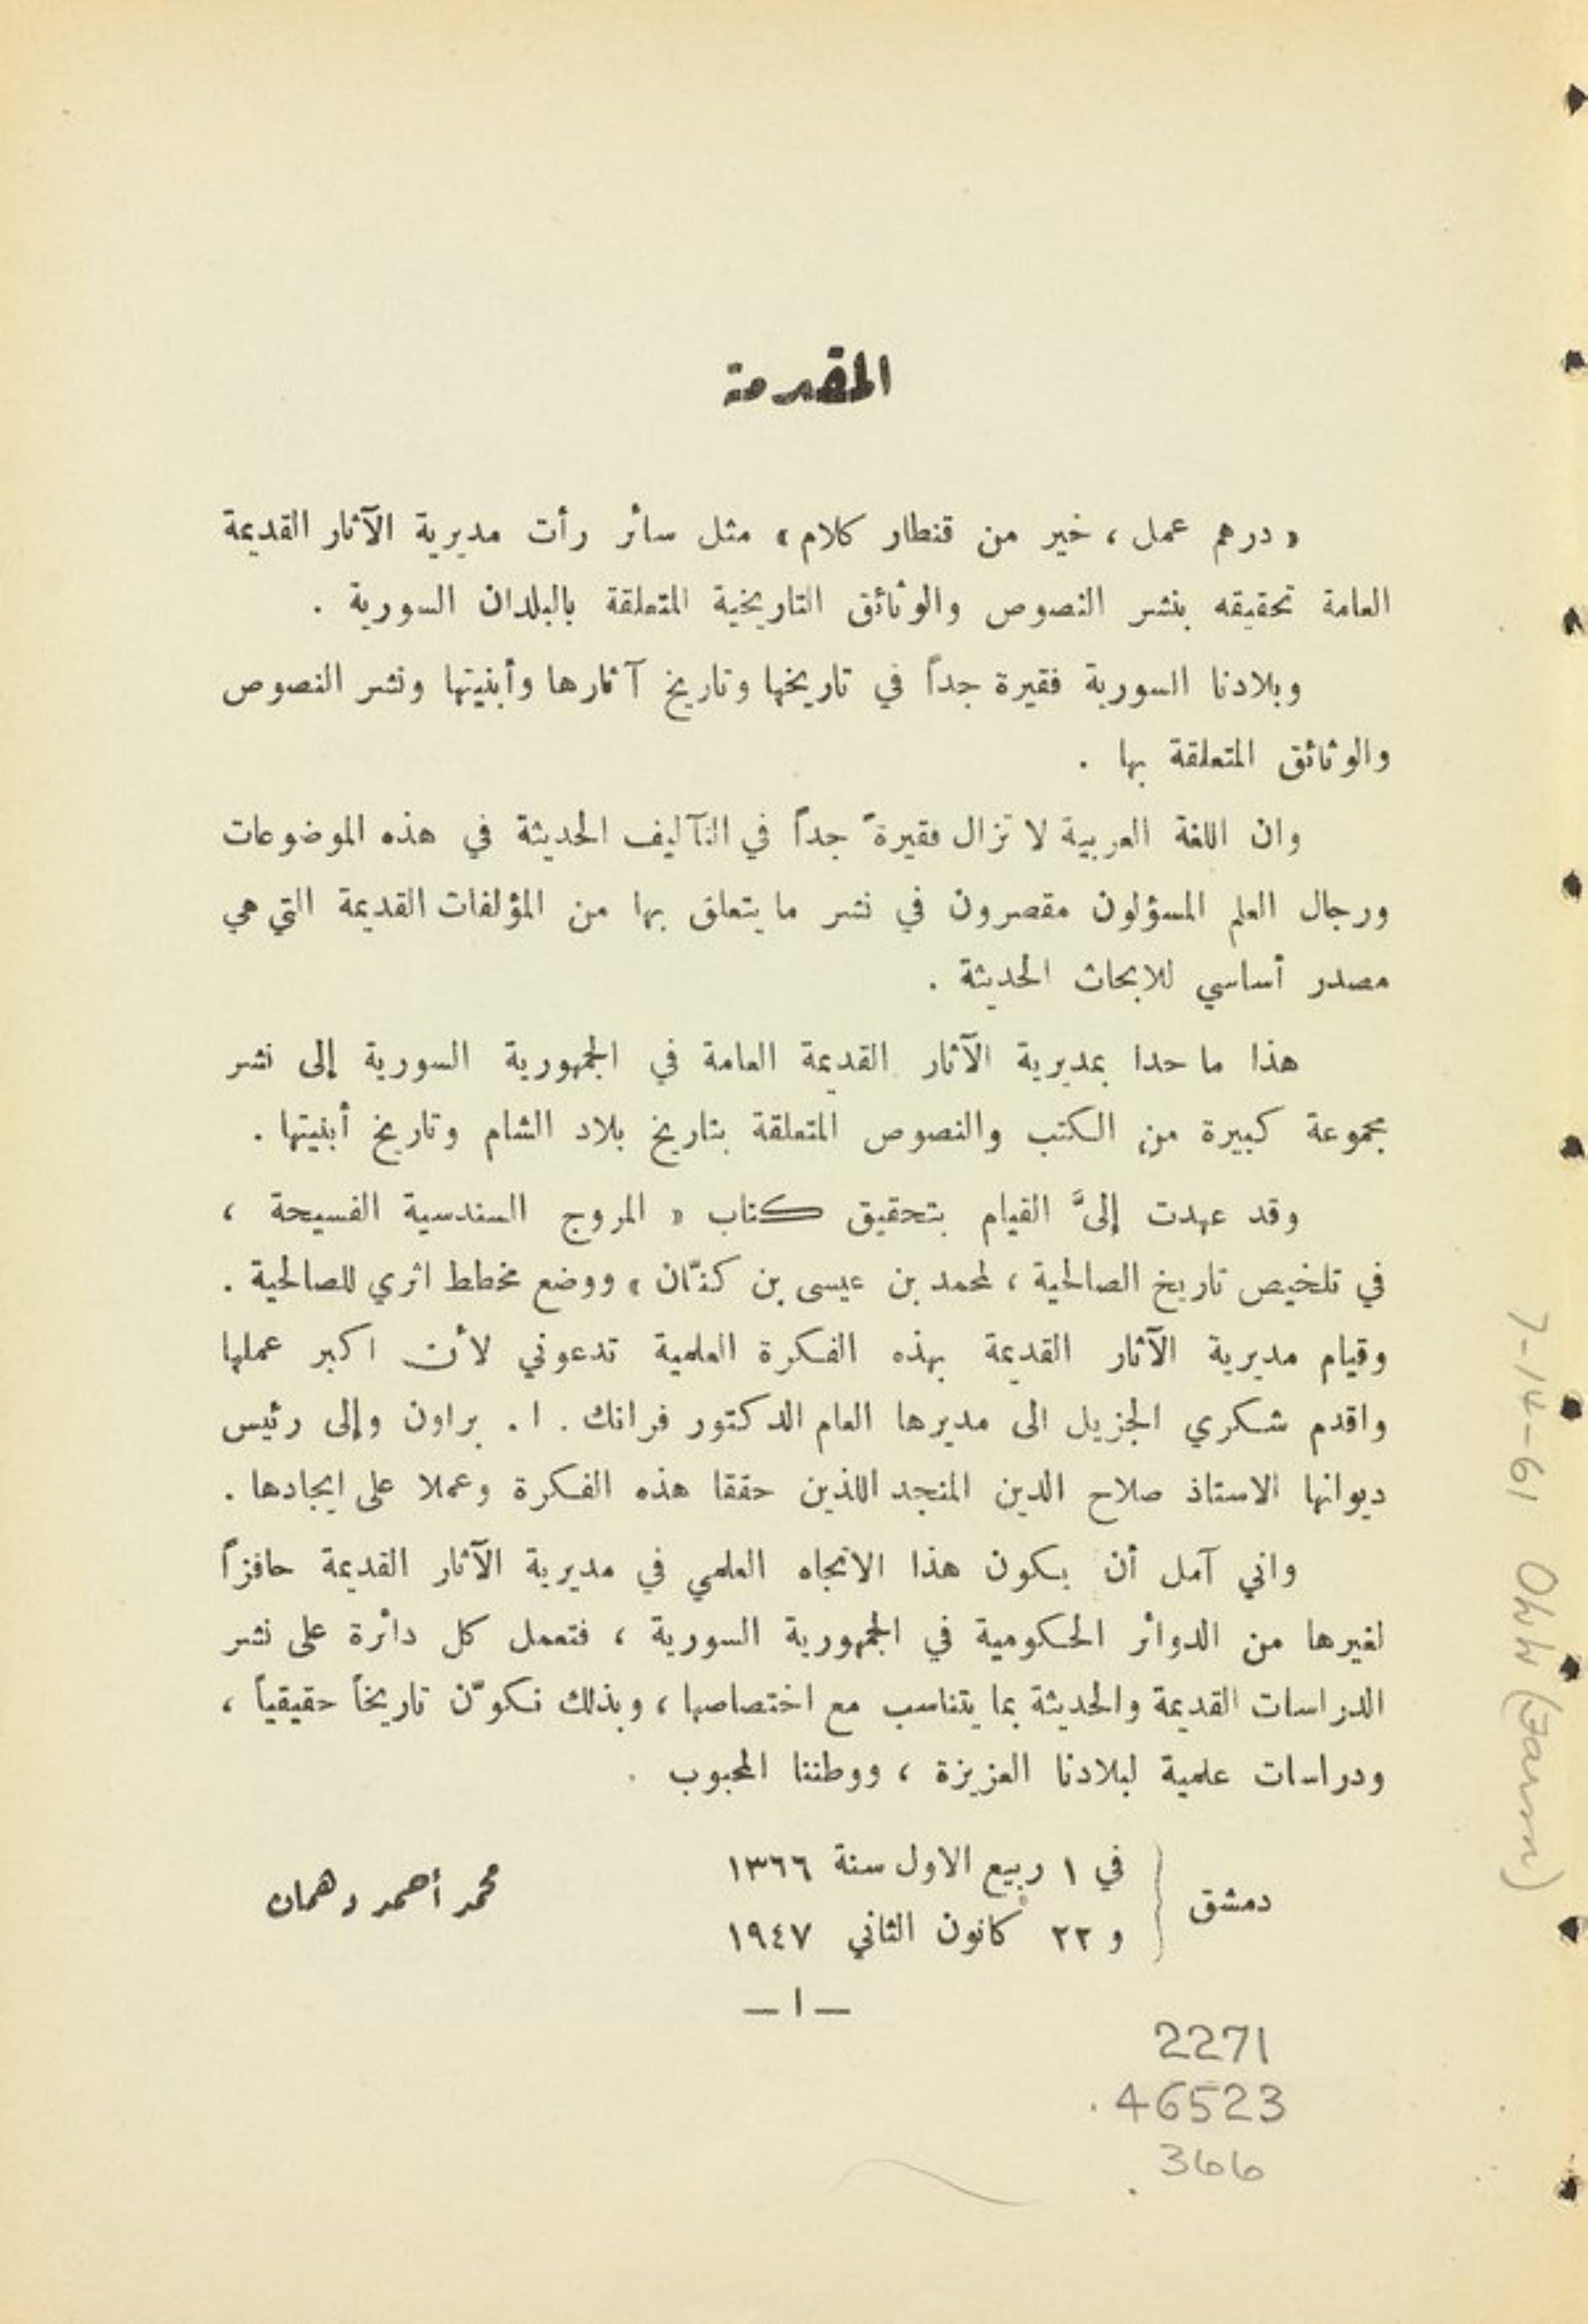 المقدمة
« درهم عمل ، خير من قنطار كلام » مثل سائر رأت مديرية الآثار القديمة
العامة تحقيقه بنشر النصوص والوثائق التاريخية المتعلقة بالبلدان السورية .
وبلادنا السورية فقيرة جداً في تاريخها وتاريخ آثارها وأبنيتها ونشر النصوص
والوثائق المتعلقة بها .
وان اللغة العربية لا تزال فقيرةً جداً في التآليف الحديثة في هذه الموضوعات
ورجال العلم المسؤلون مقصرون في نشر ما يتعلق بها من المؤلفات القديمة التي هي
مصدر أساسي للابحاث الحديثة .
هذا ما حدا بمديرية الآثار القديمة العامة في الجمهورية السورية إلى نشر
مجموعة كبيرة من الكتب والنصوص المتعلقة بتاريخ بلاد الشام وتاريخ أبنيتها .
وقد عهدت إليَّ القيام بتحقيق كتاب « المروج السندسية الفسيحة ،
في تلخيص تاريخ الصالحية ، لمحمد بن عيسى بن كنّان » ووضع مخطط اثري للصالحية .
وقيام مديرية الآثار القديمة بهذه الفكرة العلمية تدعوني لأن اكبر عملها
واقدم شكري الجزيل الى مديرها العام الدكتور فرانك . ا . براون وإلى رئيس
ديوانها الاستاذ صلاح الدين المنجد اللذين حققا هذه الفكرة وعملا على ايجادها .
واني آمل أن يكون هذا الاتجاه العلمي في مديرية الآثار القديمة حافزاً
لغيرها من الدوائر الحكومية في الجمهورية السورية ، فتعمل كل دائرة على نشر
الدراسات القديمة والحديثة بما يتناسب مع اختصاصها ، وبذلك نكوّن تاريخاً حقيقياً ،
ودراسات علمية لبلادنا العزيزة ، ووطننا المحبوب .
دمشق
في ١ ربيع الاول سنة ١٣٦٦
و ٢٢ كانون الثاني ١٩٤٧
محمد أحمد دهمان
— ١ —
2271
.46523
.366
7-14-61